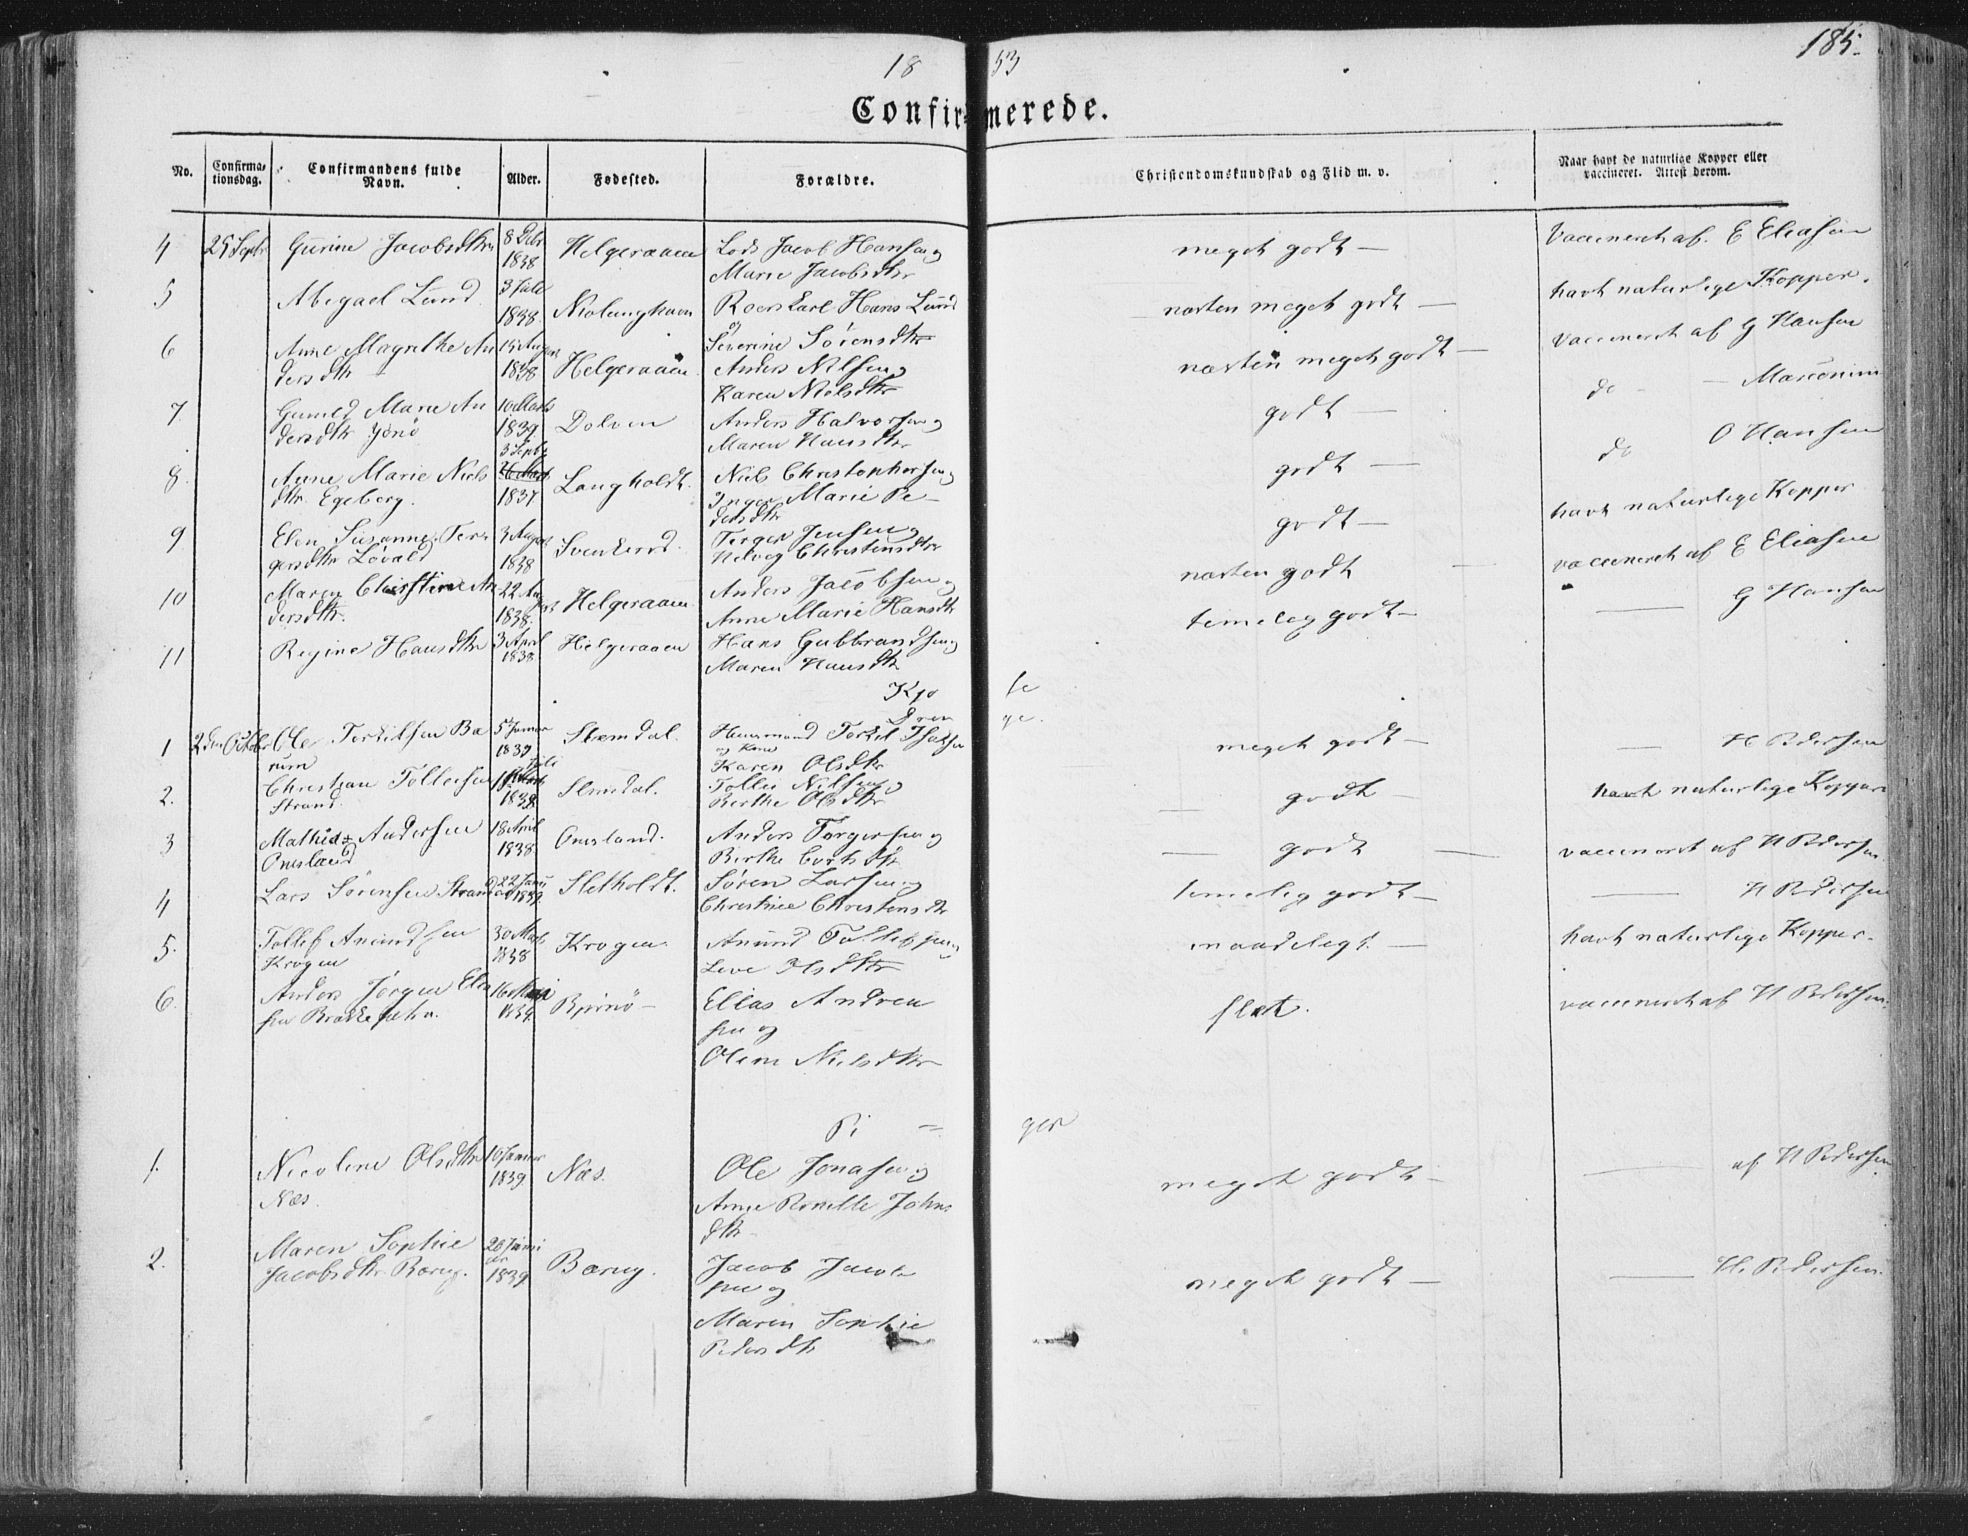 185.
18 53
Confirmerede.
No. Confirmationsdag. Confirmandens fulde Navn. Alder. Fødested. Forældre. Christendomskundskab og Flid m. v. Naar havt de naturlige Kopper eller vaccineret. Attest derom.
4 25 Septbr Gurine Jacobsdtr 8 Debr 1838 Helgeraaen Lods Jacob Hansen og Marie Jacobsdtr meget godt — Vaccineret af E Eliasen
5 Abigael Lund 3 Juli 1838 Hans Lund og Severine Sørensdtr næsten meget godt — havt naturlige Kopper.
6 Anne Magrethe Andersdtr 15 August 1838 Helgeraaen Anders Nilsen og Karen Nielsdtr næsten meget godt — vaccineret af G Hansen
7. Gunild Marie Andersdtr 10 Marts 1839 Dolven Anders Halvorsen og Maren Hansdtr godt — do —
8. Anne Marie Nielsdtr. Egeberg. 3 Septbr 1837 Langholdt. Niels Christophersen og Inger Marie Pedersdtr godt — do O Hansen
9 Elen Susanne Tergersdtr Løvald 3 August 1838 Terger Jensen og Helveg Christensdtr godt — havt naturlige Kopper
10 Maren Christine Andersdtr. 22 August 1838. Helgeraaen Anders Jacobsen og Anne Marie Hansdtr næsten godt — vaccineret af E Eliasen
11 Regine Hansdtr 3 April 1838 Helgeraaen Hans Gulbrandsen og Maren Hansdtr temelig godt — — G Hansen
Kjo se
Dren ge.
1 2den October Ole Terkilsen Barum 5 Januar 1839 Slemdal. Huusmand Torkel Isaksen og Kone Karen Olsdtr meget godt — — H Pedersen
2. Christian Tollefsen Strand. Juli 1838. Slemdal. Tollef Nilsen og Berthe Olsdtr — godt — havt naturlige Kopper
3 Mathias Andersen Onesland 18 April 1838 Onesland. Anders Torgersen og Birthe — godt — vaccineret af H Pedersen
4 Lars Sørensen Strand 22 Januar 1839 Sletholdt. Søren Larsen og Christine Christensdtr temelig godt — — H Pedersen
5. Tollef Anundsen Krogen 30 Marts 1838 Krogen Anund Tollefsen og Live Olsdtr maadeligt. — havt naturlige Kopper.
6. Anders Jørgen Eliasen 16 Mai 1839. Bjønø — Elias Andreasen og Olene Nielsdtr slet. vaccineret af H Pedersen.
Pi = ger
1. Nicoline Olsdtr Næs. 10 Januar 1839 Næs. Ole Jonasen og Anne Pernille Johnsdtr meget godt — — af H Pedersen
2. Maren Sophie Jacobsdtr Barug. 20 Januar 1839 Barug. Jacob Jacobsen og Maren Sophie Pedersdtr meget godt — — H. Pedersen.